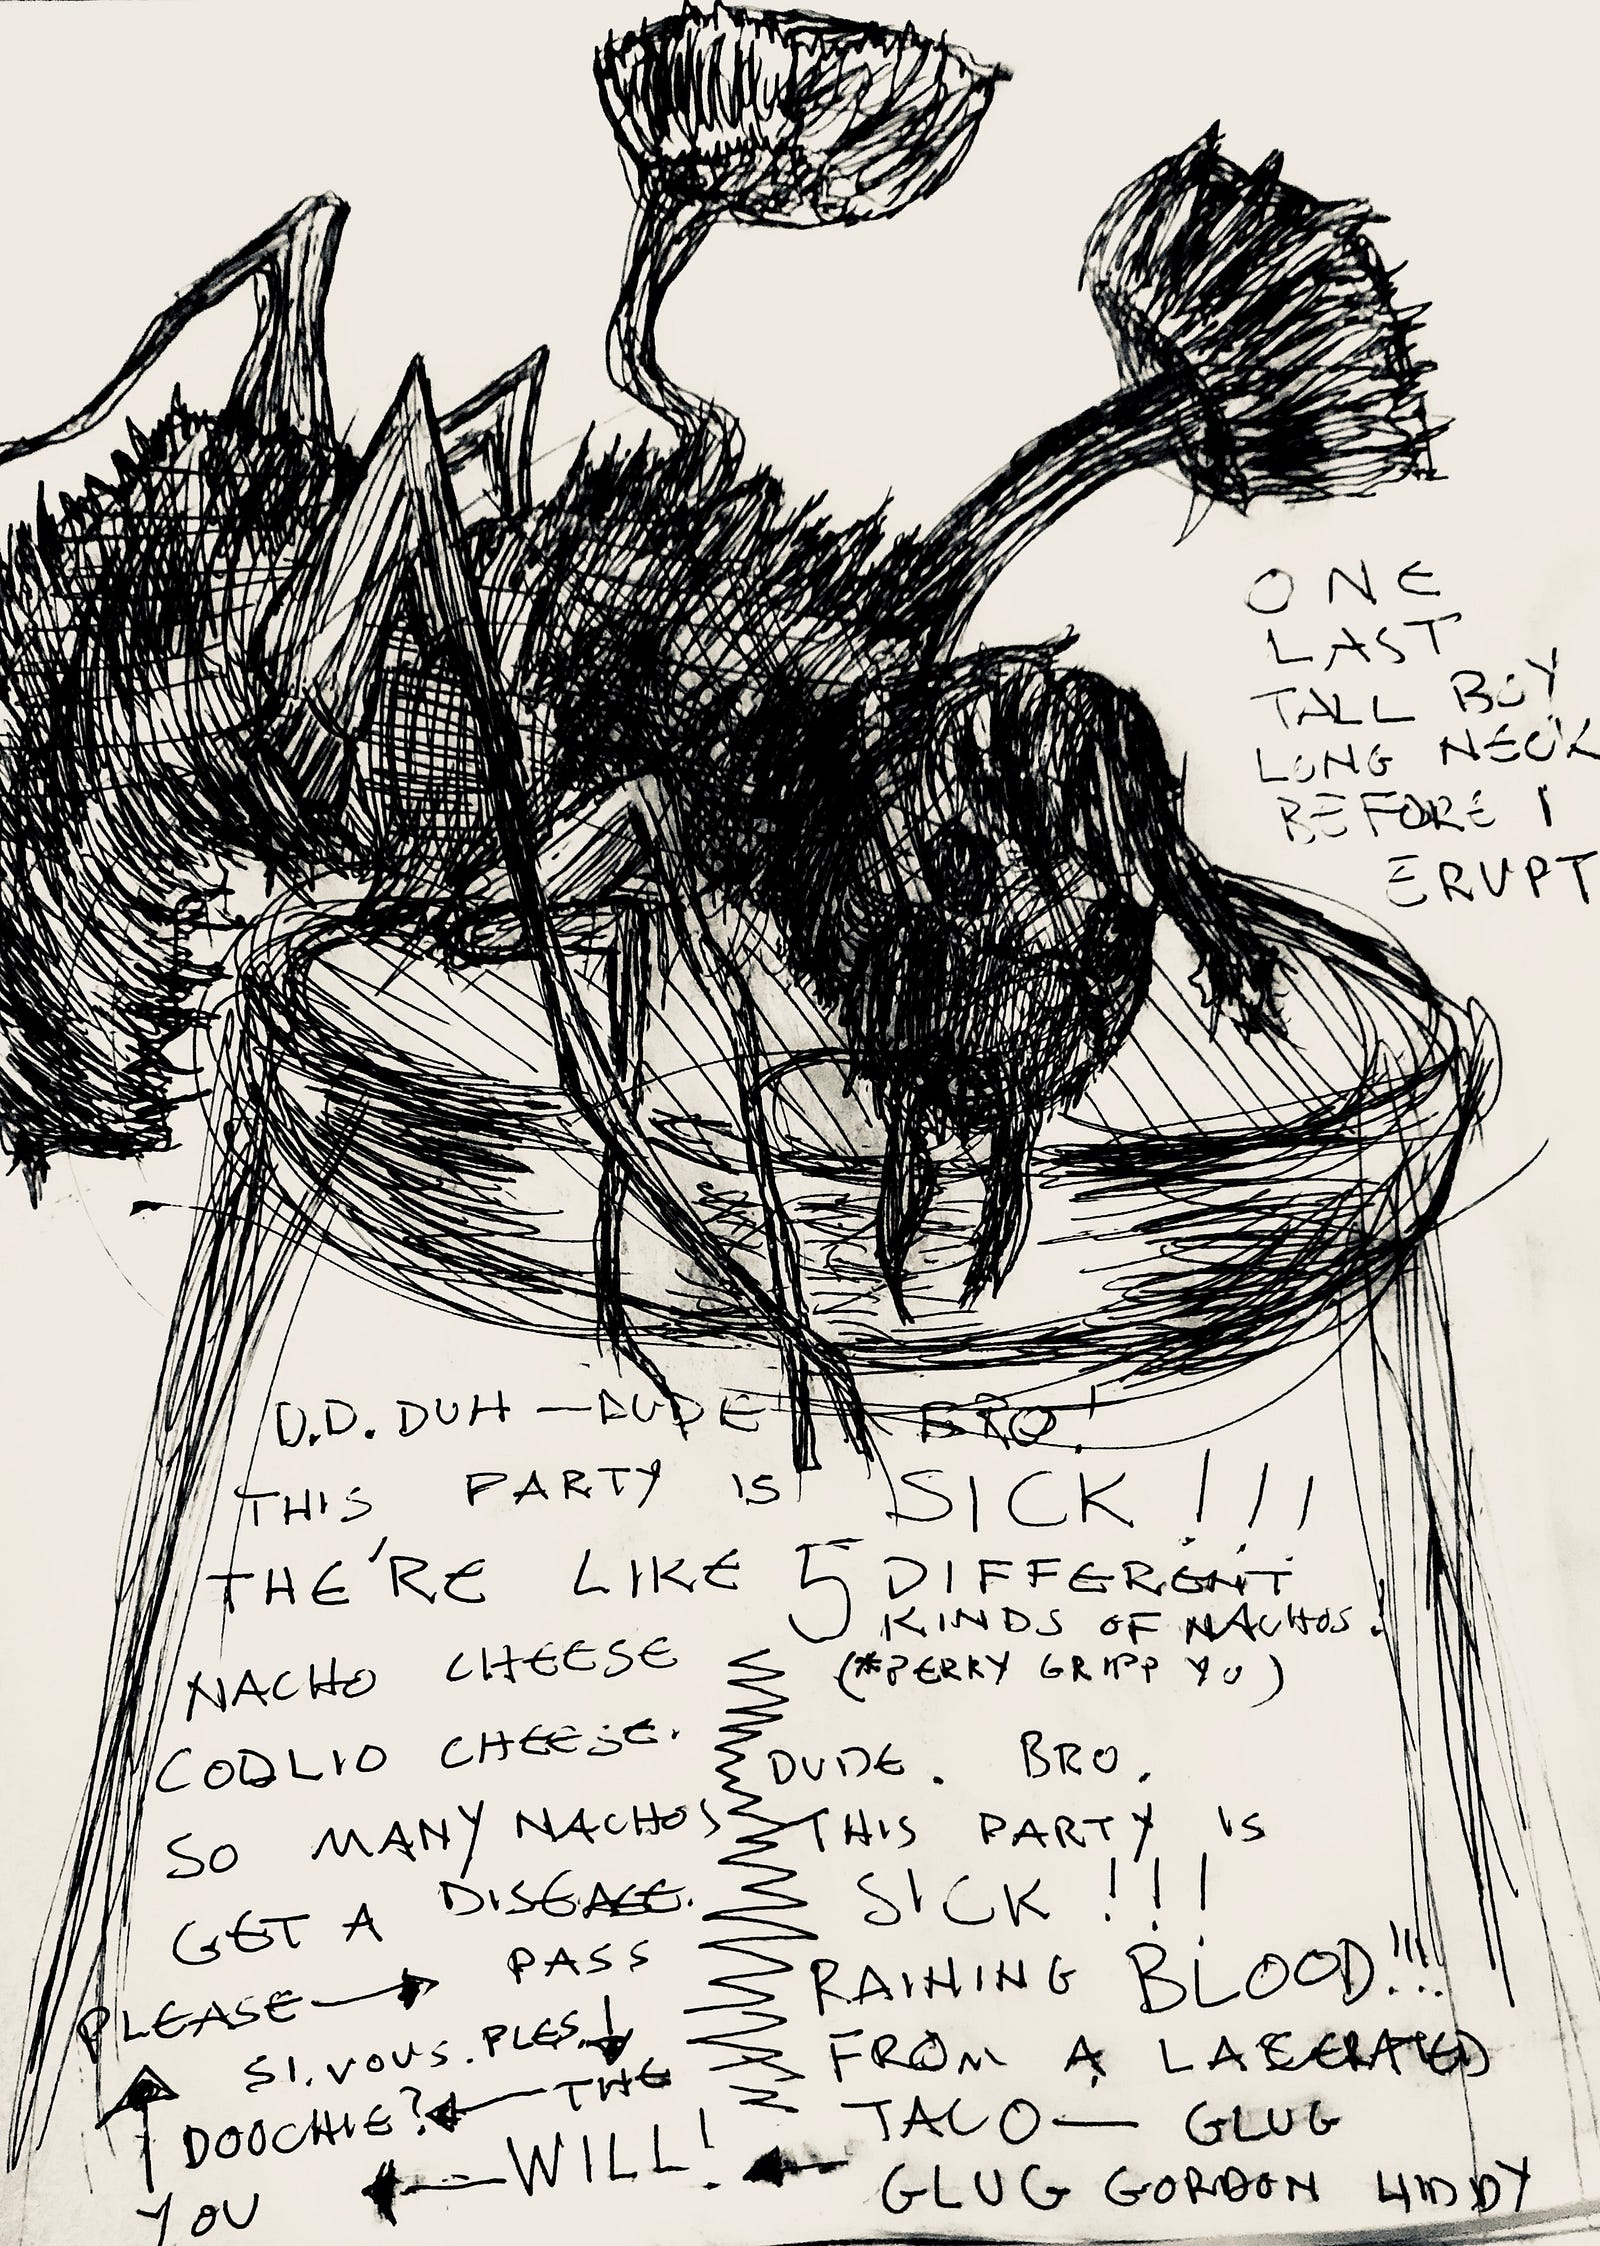 ONE
LAST
TALL BOY
LONG NECK
BEFORE I
ERUPT
D.D. DUH — DUDE BRO!
THIS PARTY IS SICK!!!
THE'RE LIKE 5 DIFFERENT
KINDS OF NACHOS.
(*PERRY GRIPP YO)
NACHO CHEESE
COOLIO CHEESE.
SO MANY NACHOS
GET A DISEASE.
PLEASE → PASS
SI.VOUS.PLES.
DOOCHIE? ← THE
YOU ← WILL!
DUDE. BRO.
THIS PARTY IS
SICK!!!
RAINING BLOOD!!!
FROM A LASERATED
TACO — GLUG
GLUG GORDON LIDDY